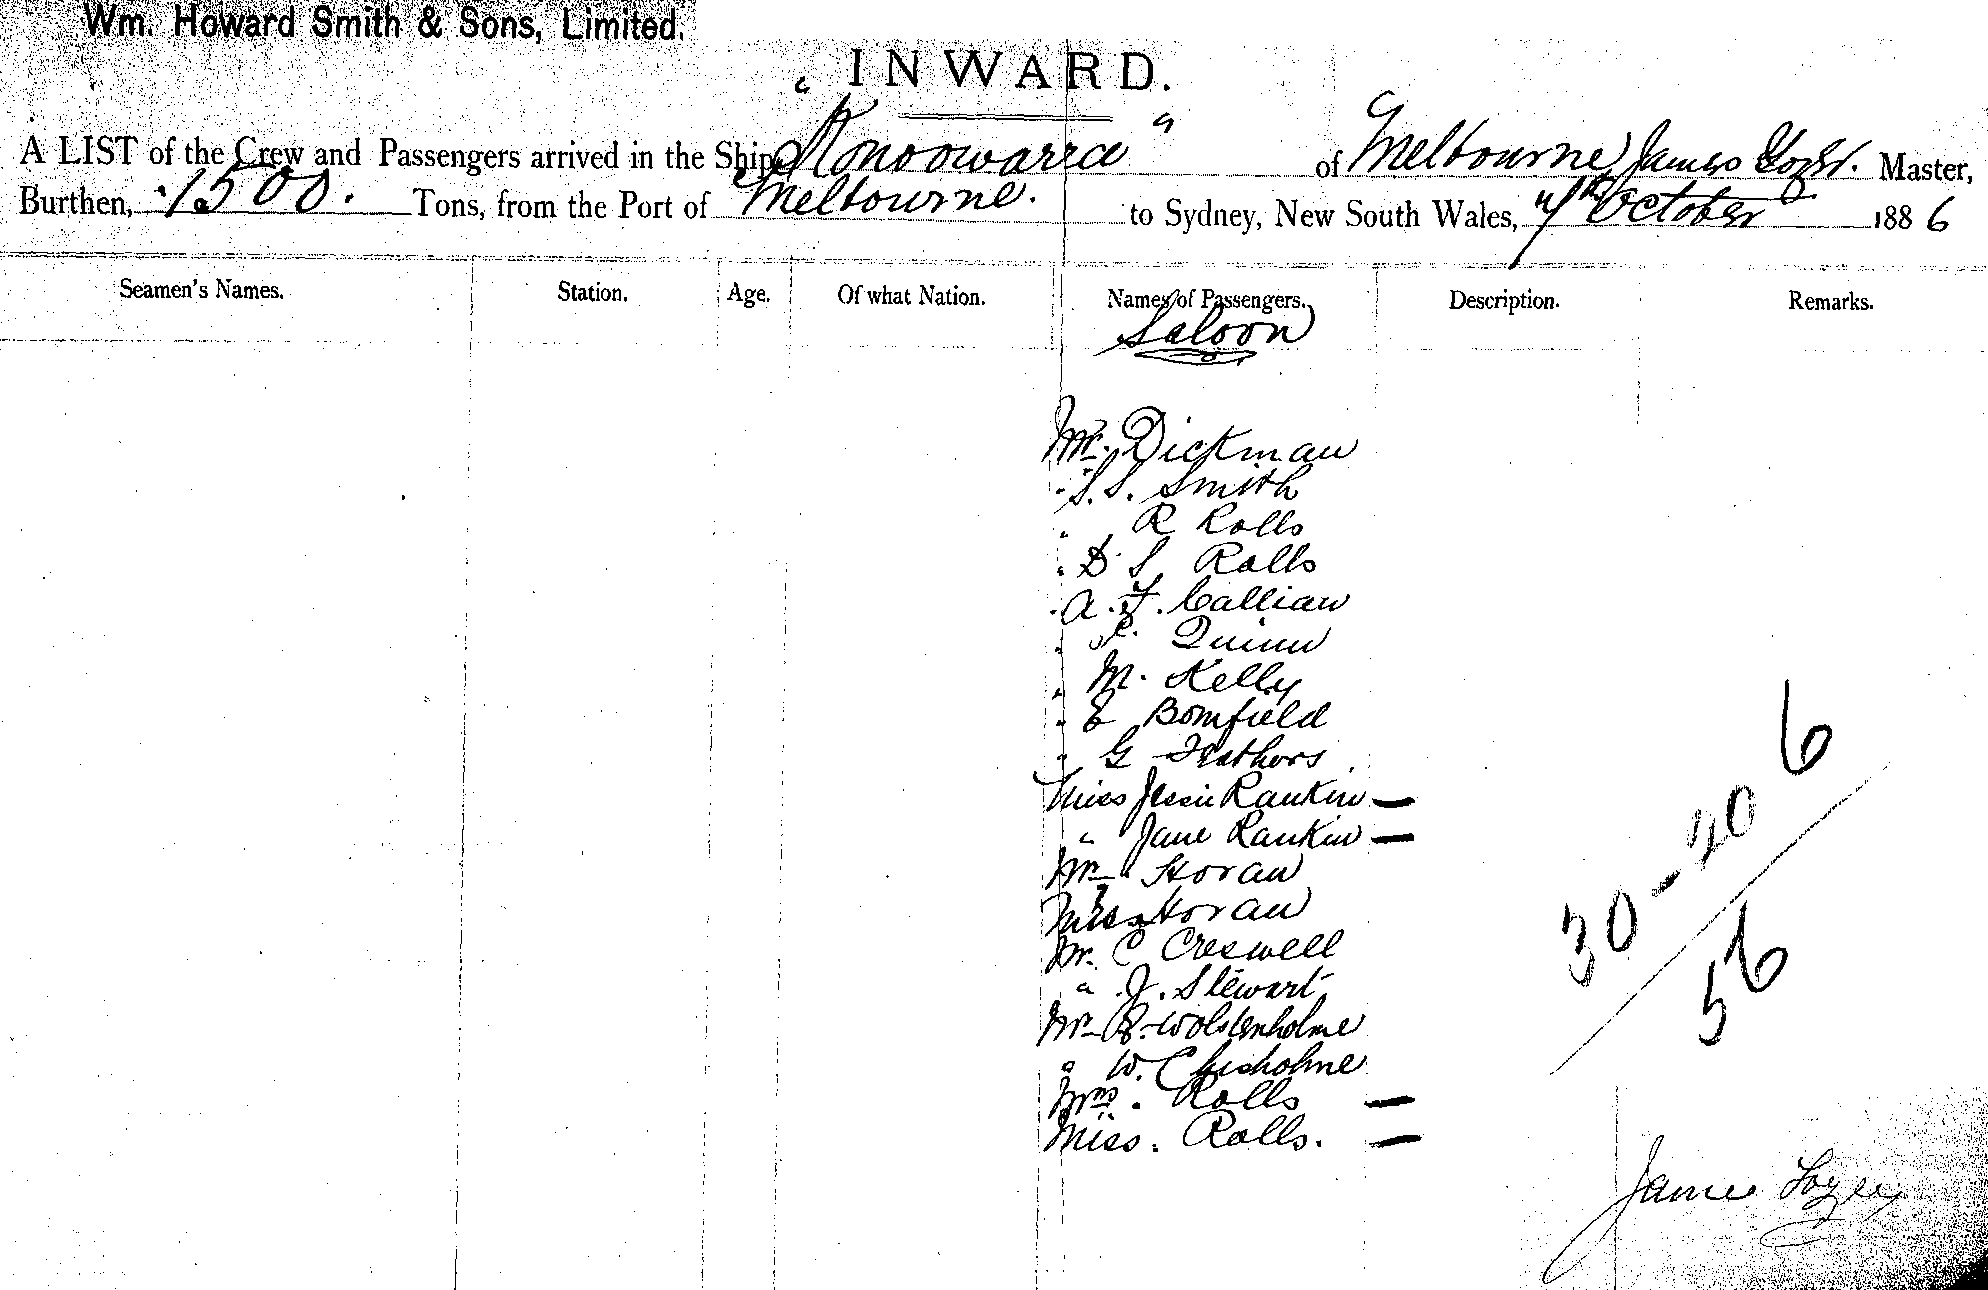 Wm. Howard Smith & Sons, Limited.
INWARD.
A LIST of the Crew and Passengers arrived in the Ship "Konoowarra" of Melbourne, James Master,
Burthen, 1500. Tons, from the Port of Melbourne. to Sydney, New South Wales, October 1886
Seamen's Names. Station. Age. Of what Nation. Names of Passengers. Description. Remarks.
Saloon
Mr. Dickman
" S. S. Smith
" R Rolls
" D S Rolls
" A. F. Callian
" Quinn
" M. Kelly
" E Bomfield
" G Feathers
Miss Jessie Rankin —
" Jane Rankin —
Mr Horan
Mrs Horan
Mr. C Creswell
" J. Stewart
Mr Wolstenholme
" W. Chisholme
Mrs. Rolls —
Miss. Rolls. —
6
30-20
56
James